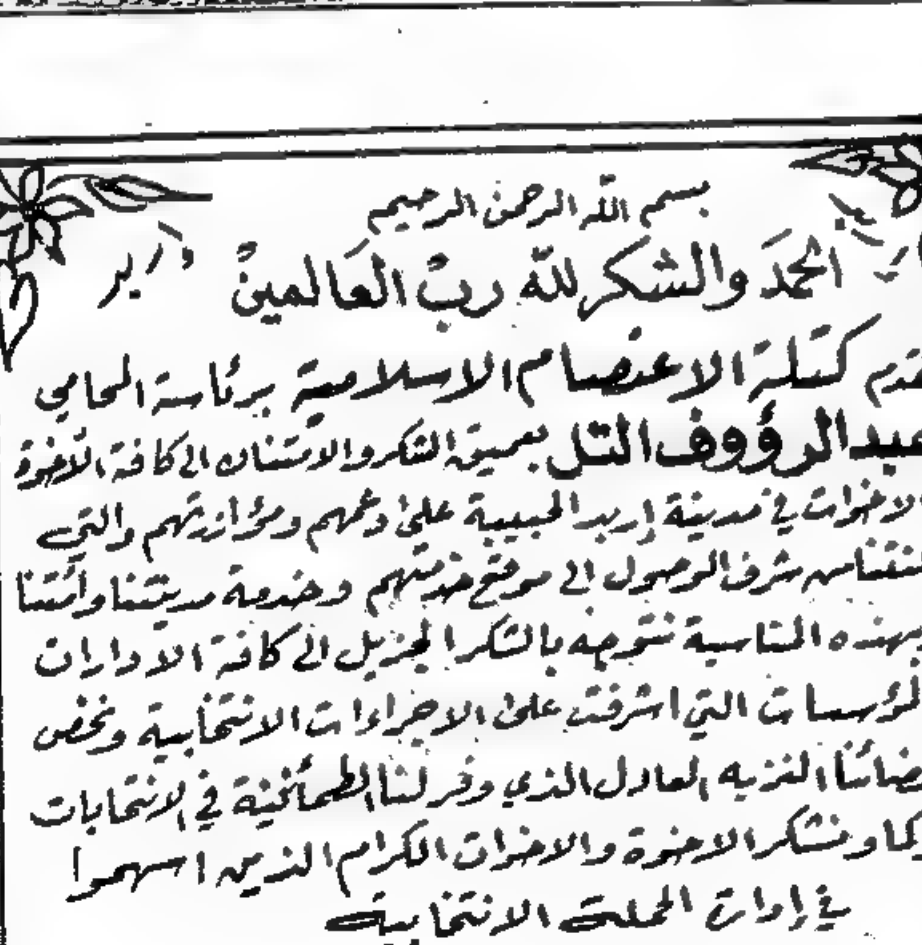 بسم الله الرحمن الرحيم
الحمد والشكر لله رب العالمين
كتلة الاعتصام الاسلامية برئاسة المحامي
عبد الرؤوف التل بعميق الشكر والامتنان الى كافة الاخوة
الاخوات في مدينة إربد الحبيبة على دعمهم ومؤازرتهم والتي
من شرف الوصول الى موقع خدمتهم وخدمة مدينتنا وأمتنا
بهذه المناسبة نتوجه بالشكر الجزيل الى كافة الادارات
المؤسسات التي اشرفت على الاجراءات الانتخابية ونخص
قضائنا النزيه العادل الذي وفر لنا الطمأنينة في الانتخابات
كما ونشكر الاخوة والاخوات الكرام الذين اسهموا
في إدارة الحملة الانتخابية